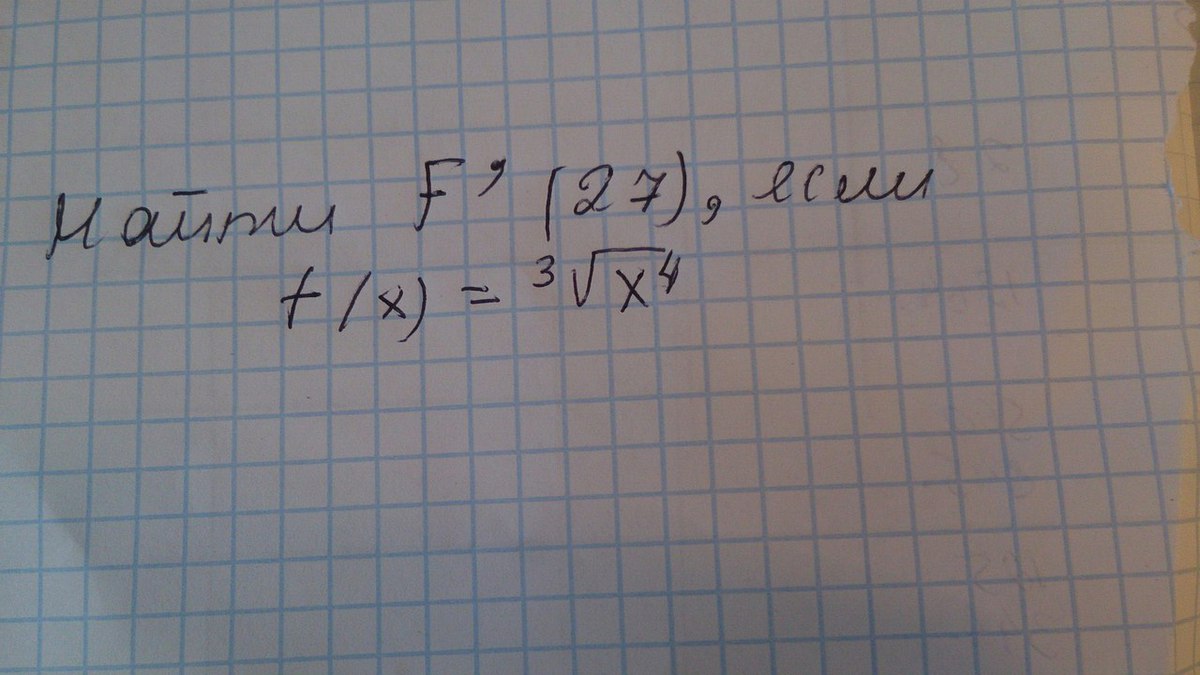 Найти F'(27), если
f(x) = ³√x⁴